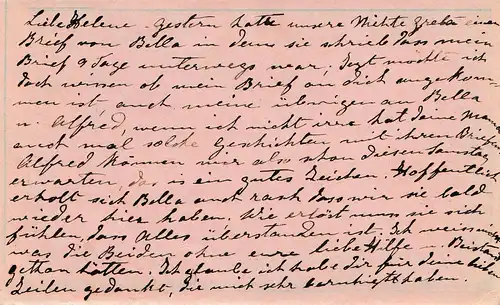 Liebe Helene. Gestern hatte unsere Nichte Greta einen
Brief von Bella in dem sie schrieb dass mein
Brief 9 Tage unterwegs war; Jezt möchte ich
doch wissen ob mein Brief an Dich angekom-
men ist, auch meine übrigen an Bella
u. Alfred, wenn ich nicht irre hat deine Mama
auch mal solche Geschichten mit ihren Briefen
Alfred können wir also schon diesen Samstag
erwarten, das is ein gutes Zeichen. Hoffentlich
erholt sich Bella auch rasch dass wir sie bald
wieder hier haben. Wie erlöst muss sie sich
fühlen, dass Alles überstanden ist. Ich weiss nicht
was die Beiden ohne eure liebe Hilfe u. Beistand
gethan hätten. Ich glaube ich habe dir für deine lieben
Zeilen gedankt, die mich sehr beruhigt haben.